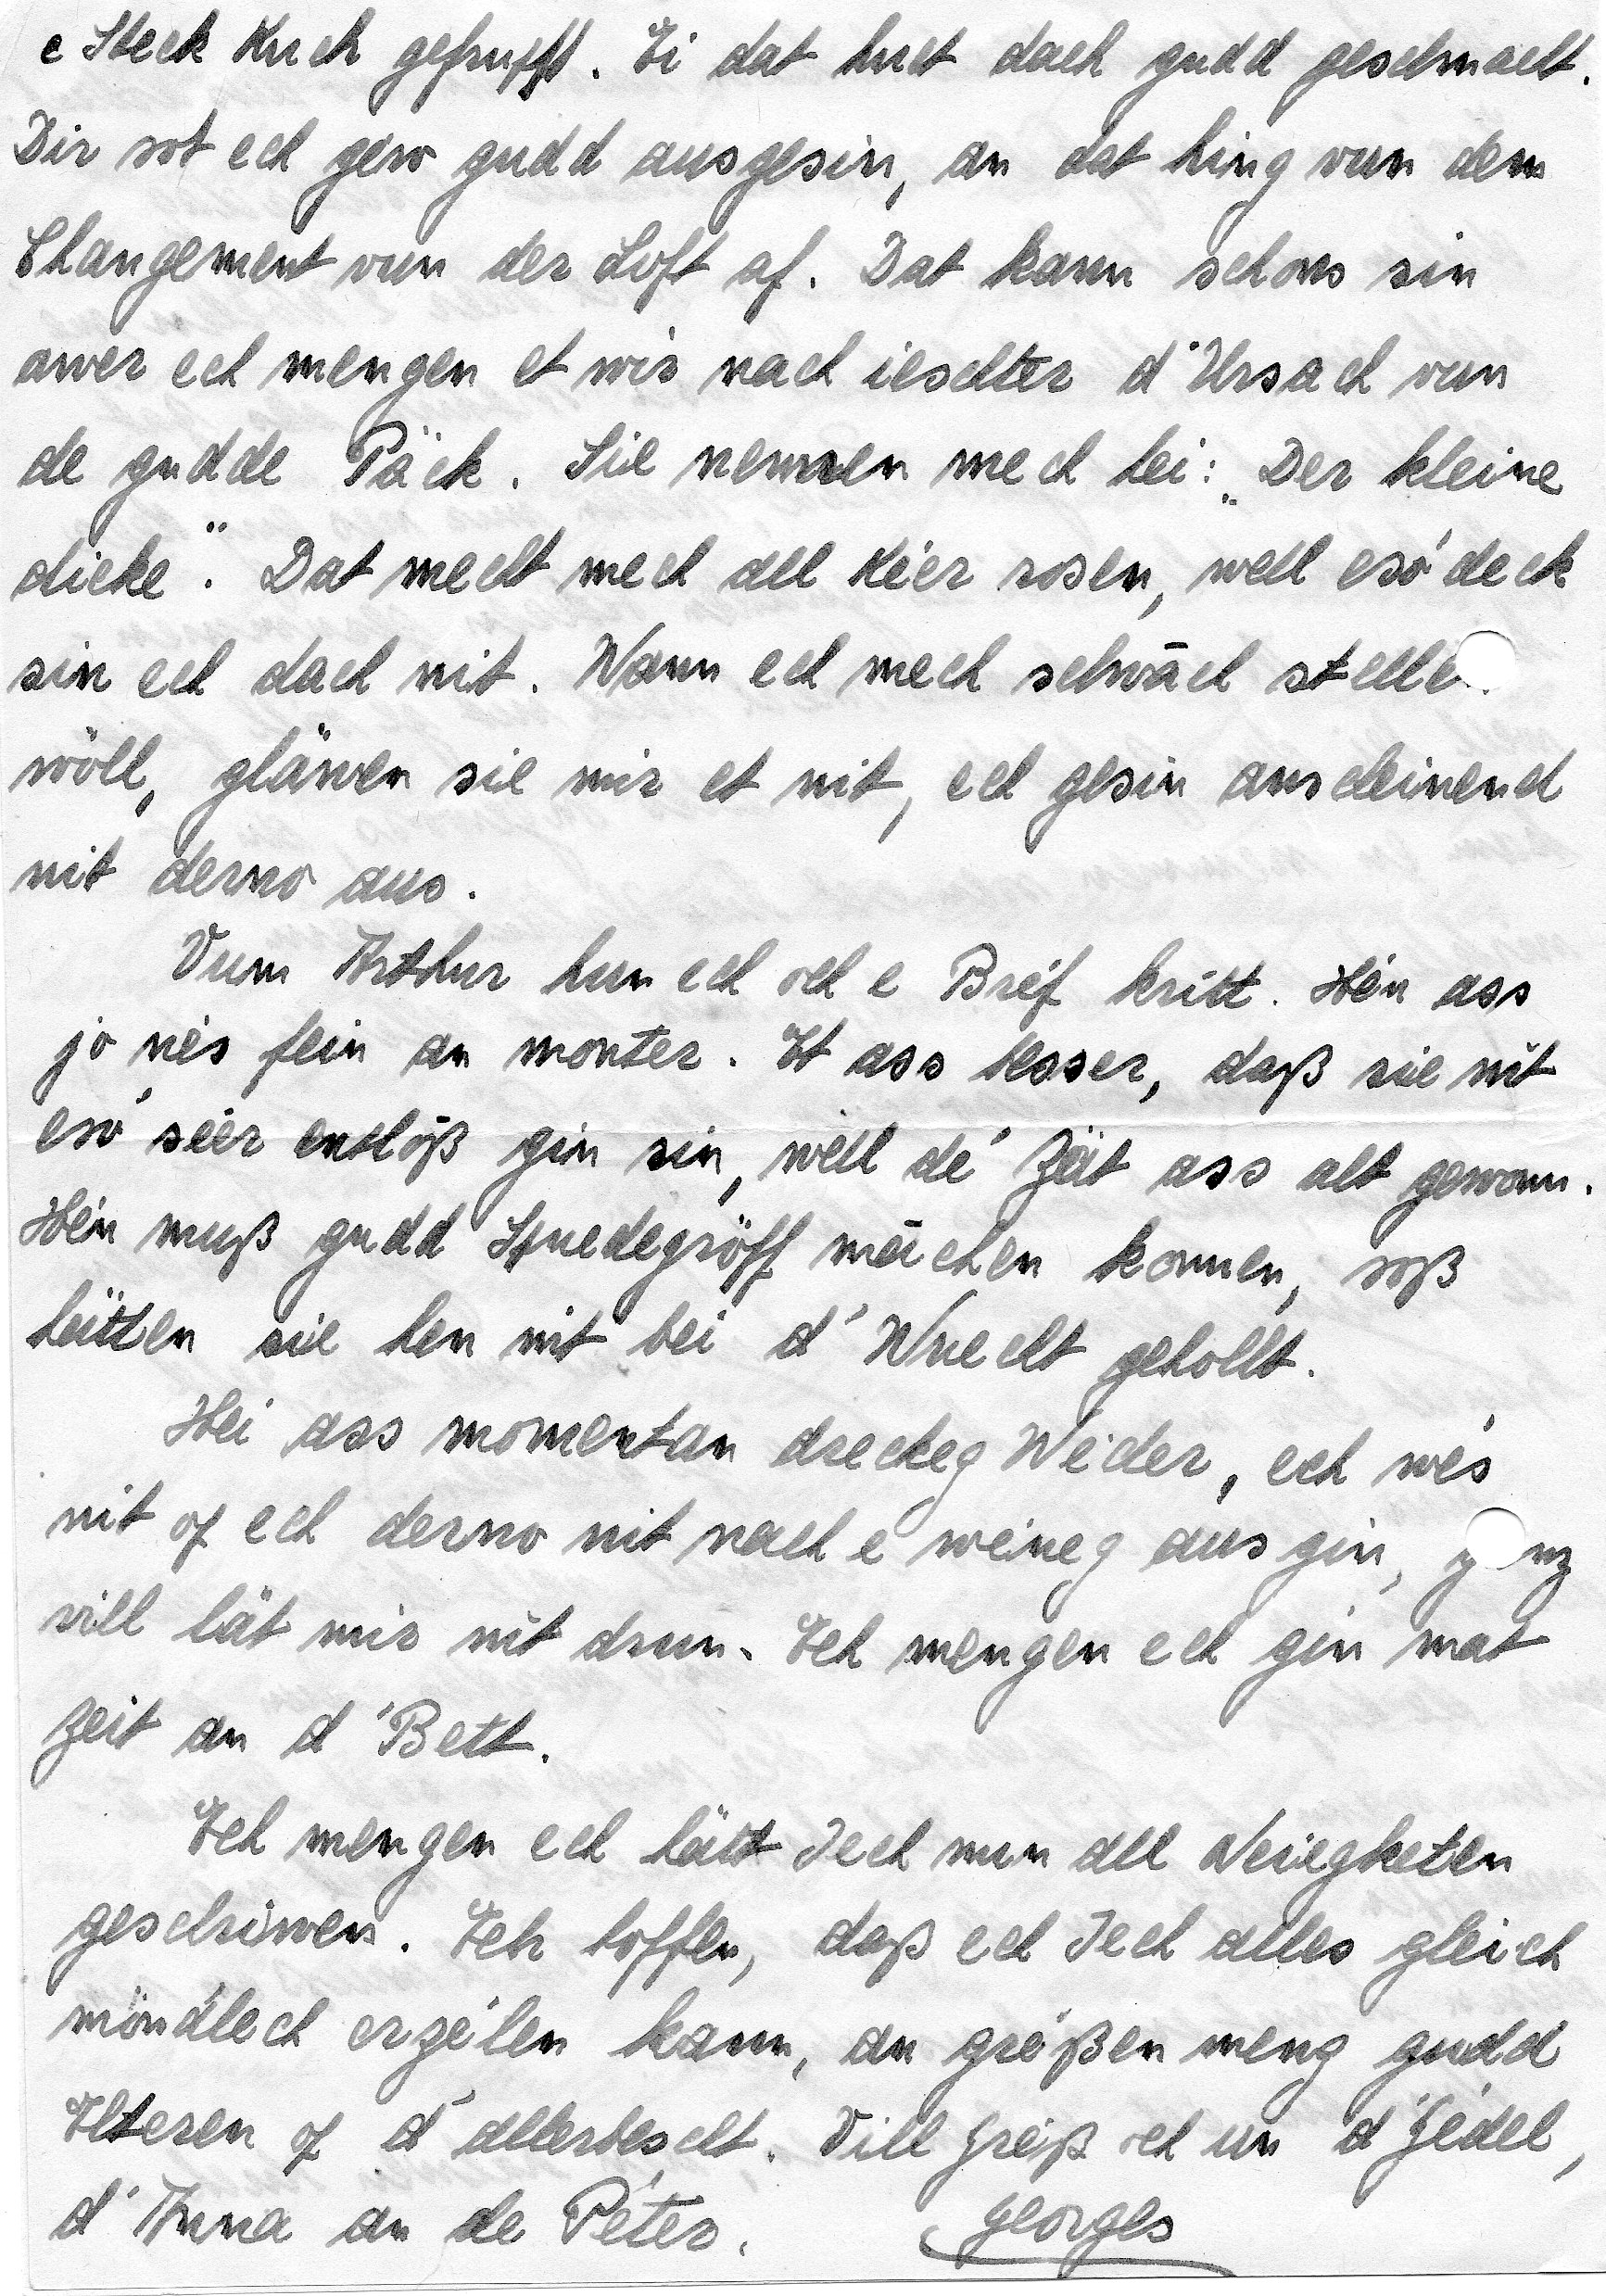 e Steck Kuch gefrupft. Ei dat huet dach gudd geschmacht.
Dir sot ech gew gudd ausgesin, an dat hing vun dem
Changement vun der Loft af. Dat kann schons sin
awer ech mengen et wir nach ieschter d'Ursach vun
de gudde Päck. Sie nennen mech hei: „Der kleine
dicke". Dat mecht mech all Kéier rosen, well esó deck
sin ech dach nit. Wann ech mech schwāch stelle
wöll, gläwen sie mir et nit, ech gesin anscheinend
nit derno aus.
Vum Arthur hun ech och e Bréf kritt. Hén ass
jo nés fein an monter. Et ass besser, daß sie nit
esó séier entlóß gin sin, well dé Zéit ass alt gewonn.
Hén muß gudd Spuedegröff māchen konnen, soß
hätten sie hen nit bei d'Wuecht gehollt.
Hei ass momentan dreckeg Wéder, ech wés
nit of ech derno nit nach e wéineg aus gin,
vill lät mir nit drun. Ech mengen ech gin mat
Zeit an d'Bett.
Ech mengen ech hätt Iech nun all Neiegketen
geschriwen. Ech hoffen, daß ech Iech alles gleich
möndlech erzélen kann, an gréßen meng gudd
Elteren of d'allerbescht. Vill Gréiß och un d'Gédel,
d'Anna an de Péter. Georges